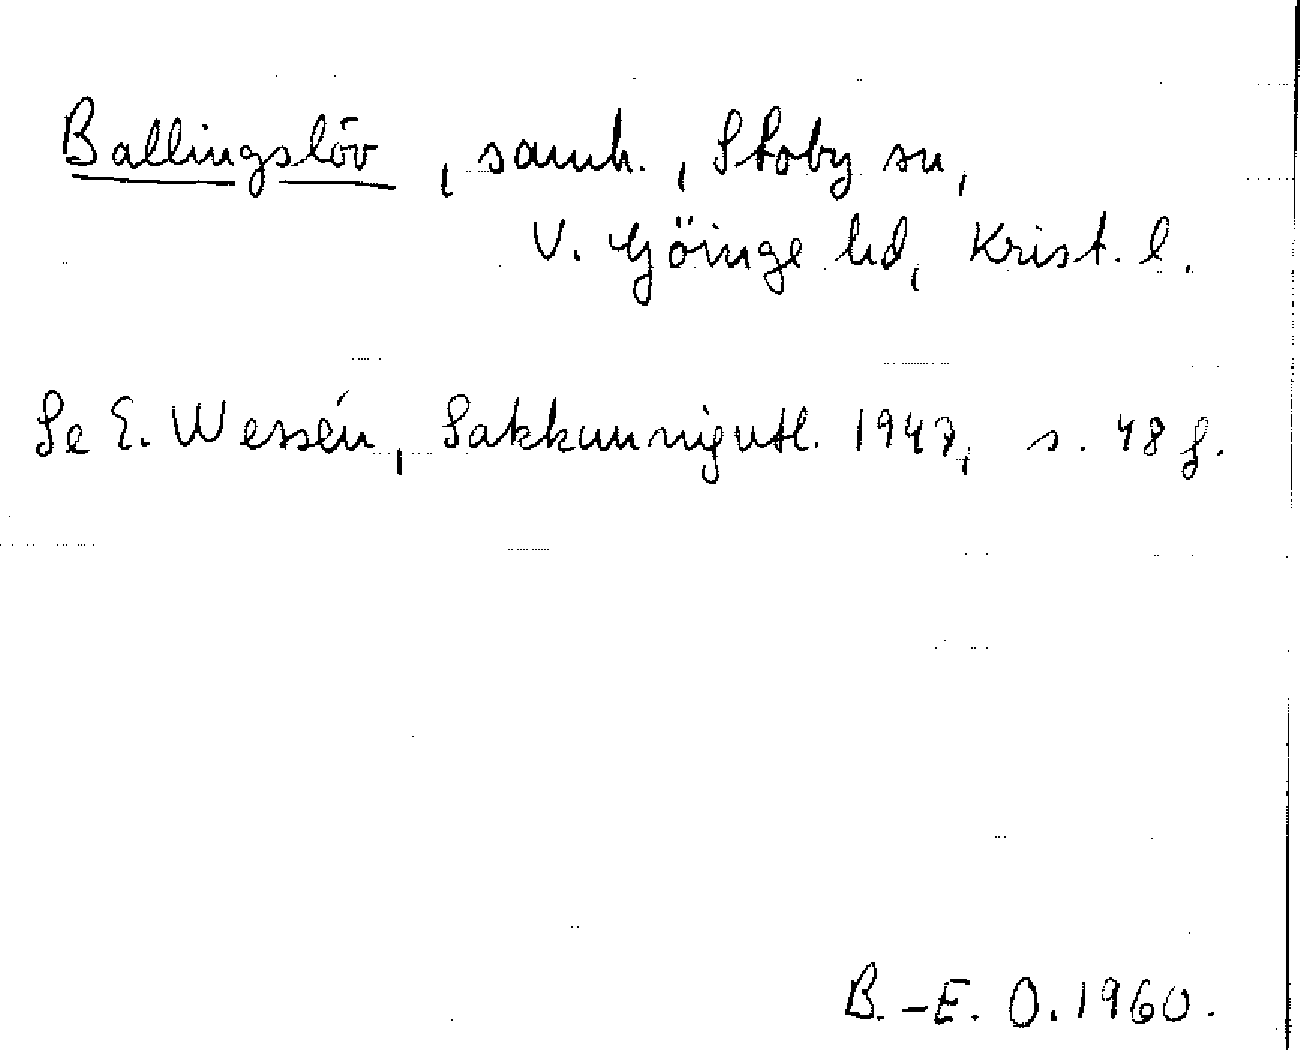 Ballingslöv, samh., Stoby sn,
V. Göinge hd, Krist. l.
Se E. Wessén, Sakkunnigutl. 1947, s. 48 f.
B.-E. O. 1960.